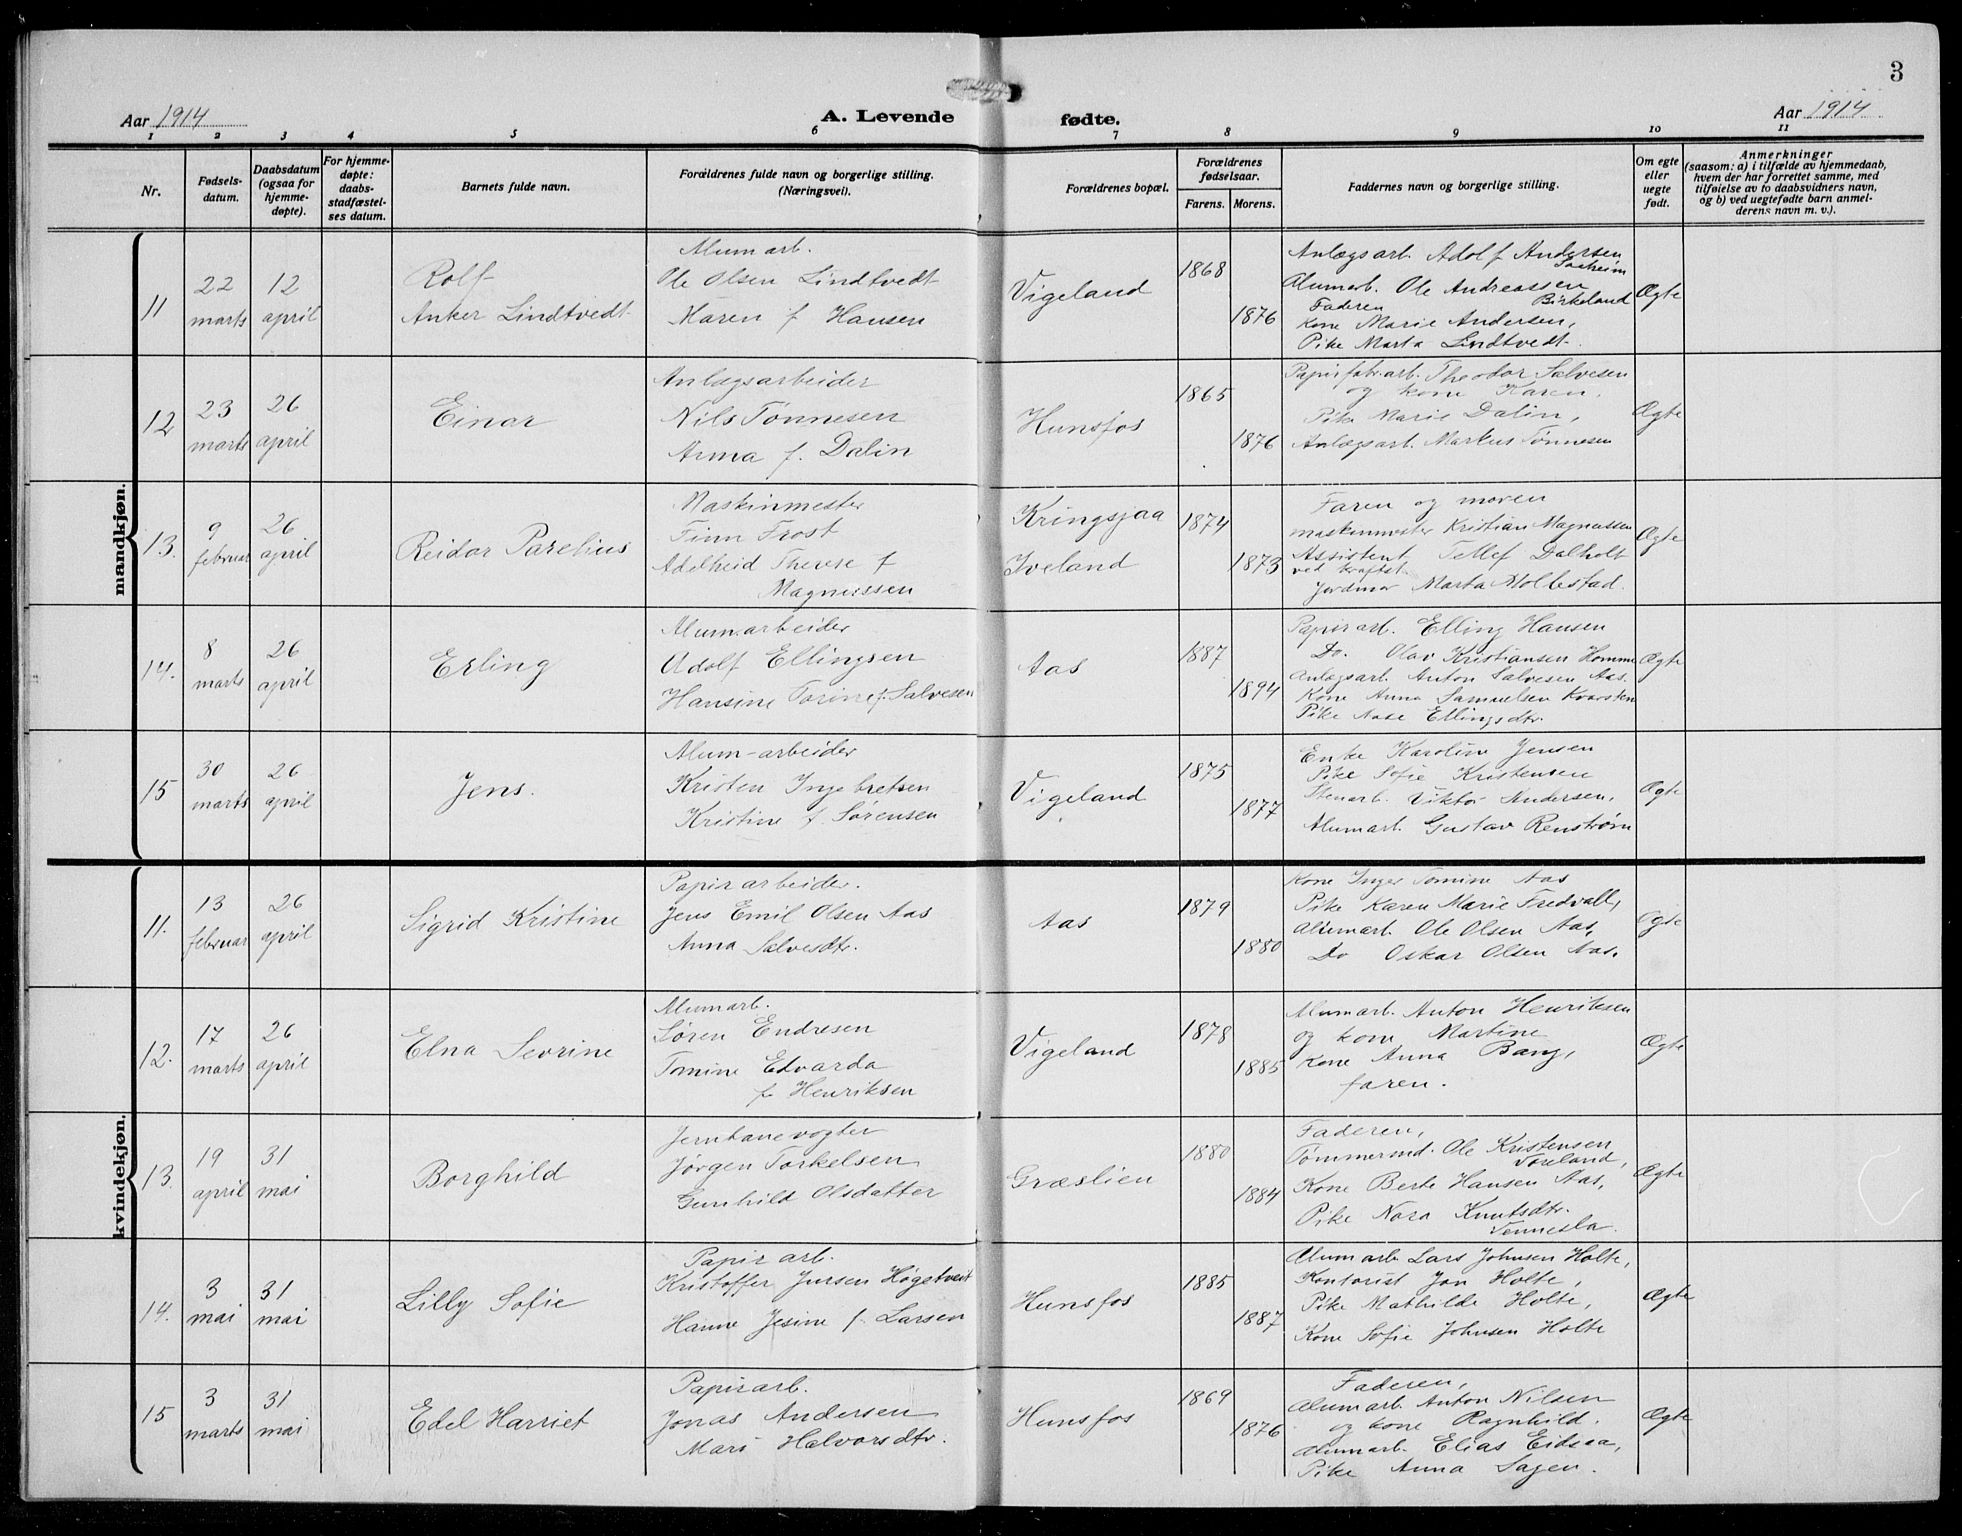 3
Aar 1914
A. Levende fødte.
Aar 1914
1 2 3 4 5 6 7 8 9 10 11
Nr.
Fødsels-
datum.
Daabsdatum
(ogsaa for
hjemme-
døpte).
For hjemme-
døpte:
daabs-
stadfæstel-
ses datum.
Barnets fulde navn.
Forældrenes fulde navn og borgerlige stilling.
(Næringsvei).
Forældrenes bopæl.
Forældrenes
fødselsaar.
Farens. Morens.
Faddernes navn og borgerlige stilling.
Om egte
eller
uegte
født.
Anmerkninger
(saasom: a) i tilfælde av hjemmedaab,
hvem der har forrettet samme, med
tilføielse av to daabsvidners navn,
og b) ved uegtefødte barn anmel-
derens navn m. v.).
mandkjøn.
11
22
marts
12
april
Rolf
Anker Lindtvedt
Alumarb.
Ole Olsen Lindtvedt
Maren f. Hansen
Vigeland
1868
1876
Anlægsarb. Adolf Andersen
Alumarb. Ole Andreassen
Birkeland
Faderen
Kone Marie Andersen,
Pike Marta Lindtvedt.
Ægte
12
23
marts
26
april
Einar
Anlægsarbeider
Nils Tønnesen
Anna f. Dalin
Hunsfos
1865
1876
Papirfabr.arb. Theodor Salvesen
og kone Karen,
Pike Marie Dalin,
Anlægsarb. Markus Tønnesen
Ægte
13.
9
februar
26
april
Reidar Parelius
Maskinmester
Finn Frost
Adelheid Therese f
Magnussen
Kringsjaa
Iveland
1874
1873
Faren og moren
maskinmester Kristian Magnussen
Assistent Tellef Dalholt
ved kraftst.
Jordmor Marta Mollestad.
Ægte
14.
8
marts
26
april
Erling
Alumarbeider
Adolf Ellingsen
Hansine Torine f. Salvesen
Aas
1887
1894
Papirarb. Elling Hansen
Do. Olav Kristiansen Homme
Anlægsarb. Anton Salvesen Aas.
Kone Anna Samuelsen Kvarsten
Pike Aase Ellingsdtr.
Ægte
15
30
marts
26
april
Jens.
Alum-arbeider
Kristen Ingebretsen
Kristine f. Sørensen
Vigeland
1875
1877
Enke Karoline Jensen
Pike Sofie Kristensen
Stenarb. Viktor Andersen,
Alumarb. Gustav Renstrøm
Ægte
kvindekjøn.
11.
13
februar
26
april
Sigrid Kristine
Papirarbeider.
Jens Emil Olsen Aas
Anna Salvesdtr.
Aas
1879
1880
Kone Inger Tomine Aas
Pike Karen Marie Fredvall,
Alumarb. Ole Olsen Aas,
Do Oskar Olsen Aas.
Ægte
12.
17
marts
26
april
Elna Sevrine
Alumarb.
Søren Endresen
Tomine Edvarda
f. Henriksen
Vigeland
1878
1885
Alumarb. Anton Henriksen
og kone Martine
Kone Anna Bang,
faren.
Ægte
13.
19
april
31
mai
Borghild
Jernbanevogter
Jørgen Torkelsen
Gunhild Olsdatter
Græslien
1880
1884
Faderen,
Tømmermd. Ole Kristensen
Kone Berte Hansen Aas,
Pike Nora Knutsdtr.
Vennesla.
Ægte
14.
3
mai
31
mai
Lilly Sofie
Papirarb.
Kristoffer Jensen Høgetveit
Hanne Jesine f. Larsen
Hunsfos
1885
1887
Alumarb Lars Johnsen Holte,
Kontorist Jon Holte,
Pike Mathilde Holte,
Kone Sofie Johnsen Holte
Ægte
15
3
marts
31
mai
Edel Harriet
Papirarb.
Jonas Andersen
Mari Halvorsdtr.
Hunsfos
1869
1876
Faderen,
Alumarb. Anton Nilsen
og kone Ragnhild.
Alumarb. Elias Eidsaa,
Pike Anna Sagen.
Ægte